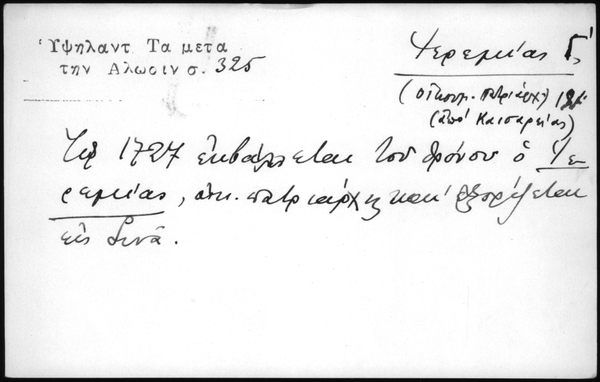 Ὑψηλαντ Τα μετα
την Αλωσιν σ. 325
Ἱερεμίας Γ΄
(οἰκουμ. πατριάρχης
(ἀπό Καισαρείας)
Τῷ 1727 ἐκβάλλεται τοῦ θρόνου ὁ Ἱε-
ρεμίας, οἰκ. πατριάρχης καί ἐξορίζεται
εἰς Σινᾶ.